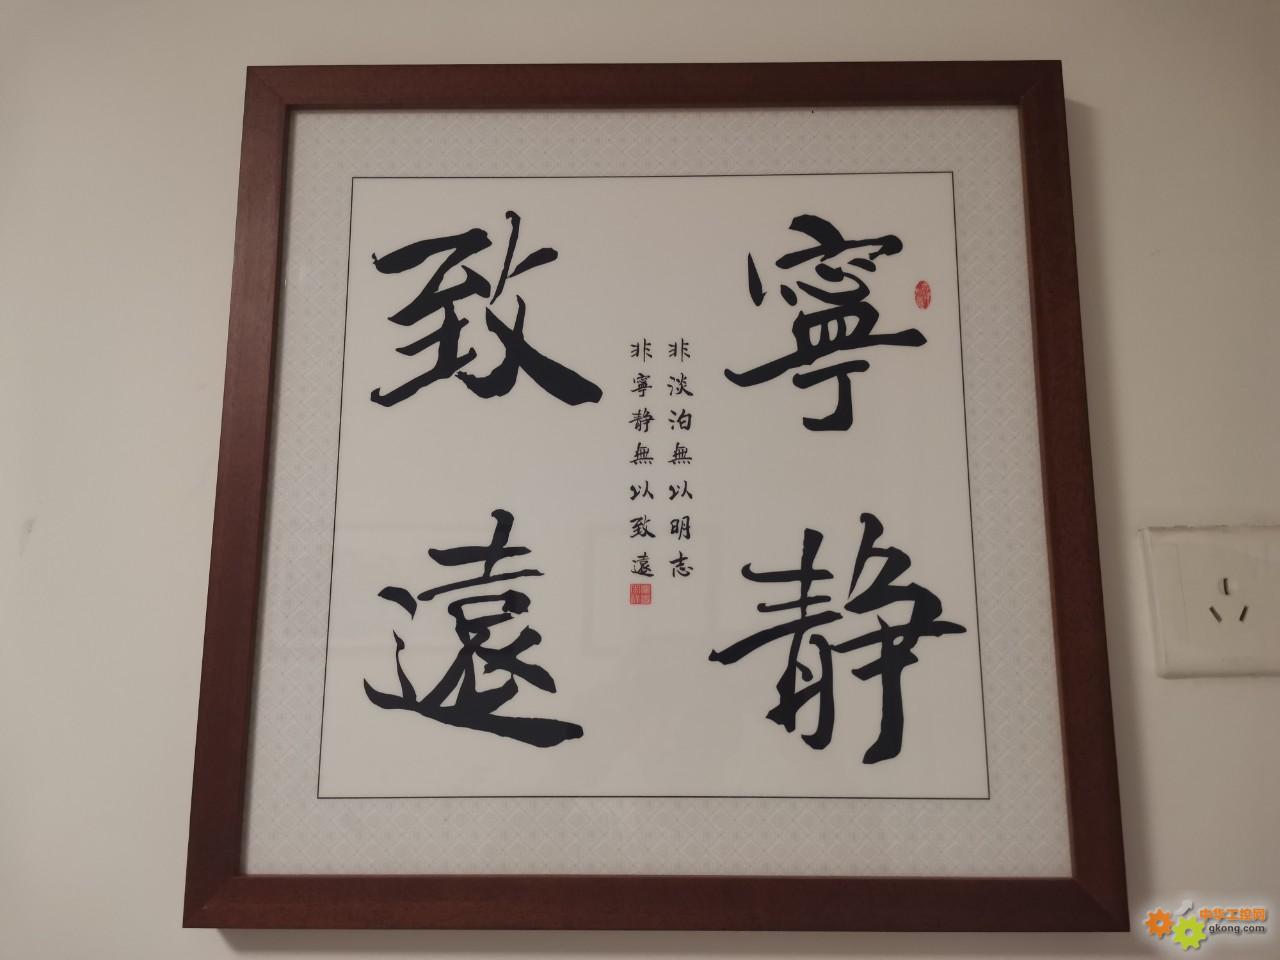 寧靜
致遠
非淡泊無以明志
非寧靜無以致遠
中华工控网
gkong.com